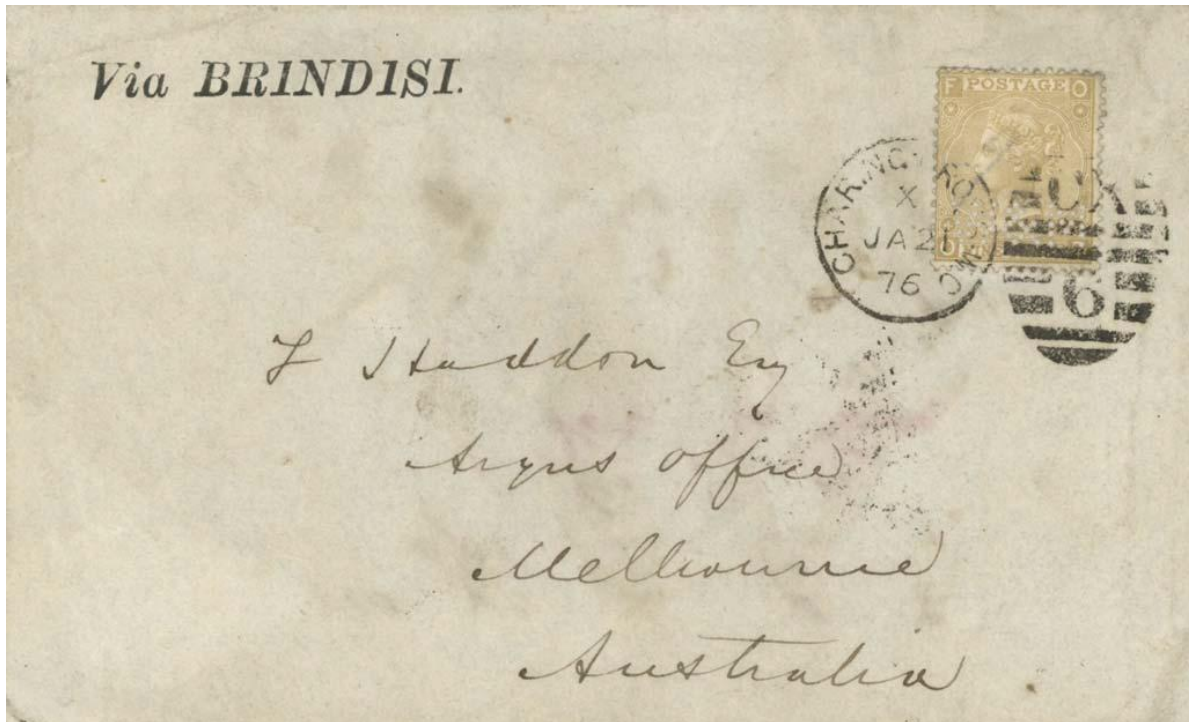 Via BRINDISI.
F POSTAGE O
CHARING CROSS
X
JA 21
76
CX
6
F Haddon Esq
Argus Office
Melbourne
Australia